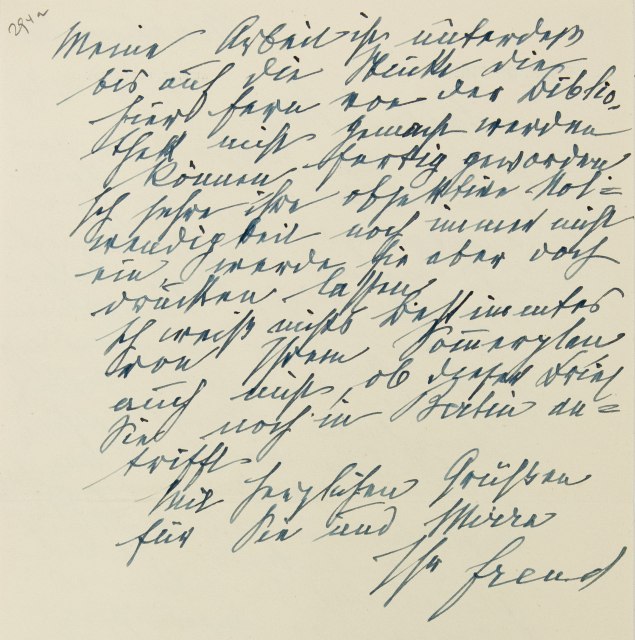 Meine Arbeit ist unterdeß
bis auf die Stücke die
hier fern von der Biblio-
thek nicht gemacht werden
können fertig geworden
Ich sehe ihre objektive Not=
wendigkeit noch immer nicht
ein, werde sie aber doch
drucken lassen
Ich weiß nichts Bestimmtes
von Ihrem Sommerplan
auch nicht, ob dieser Brief
Sie noch in Berlin an=
trifft
Mit herzlichen Grüßen
für Sie und Mirra
Ihr Freud